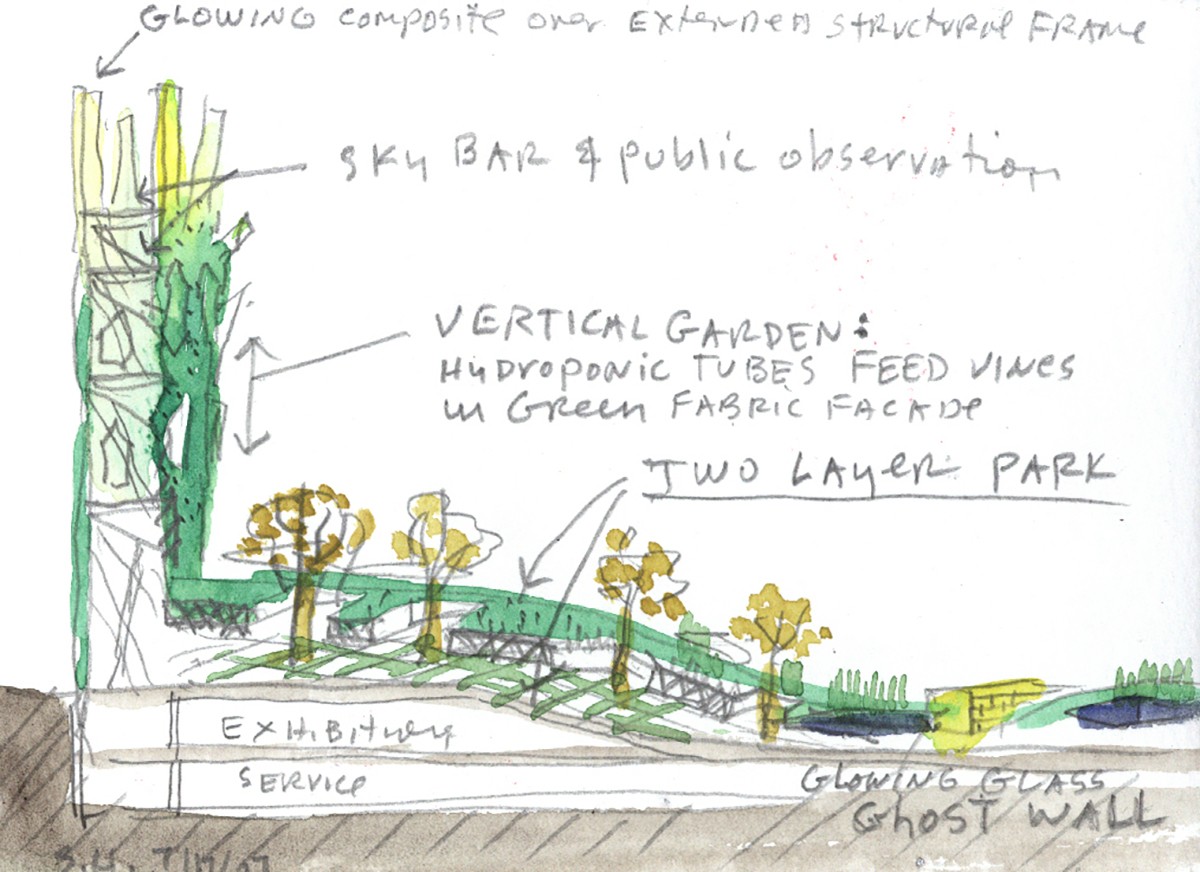 GLOWING composite over EXTENDED STRUCTURAL FRAME
SKY BAR & public observation
VERTICAL GARDEN:
HYDROPONIC TUBES FEED VINES
in Green FABRIC FACADE
TWO LAYER PARK
EXHIBITIONS
SERVICE
GLOWING GLASS
GHOST WALL
S.H. 7/17/07